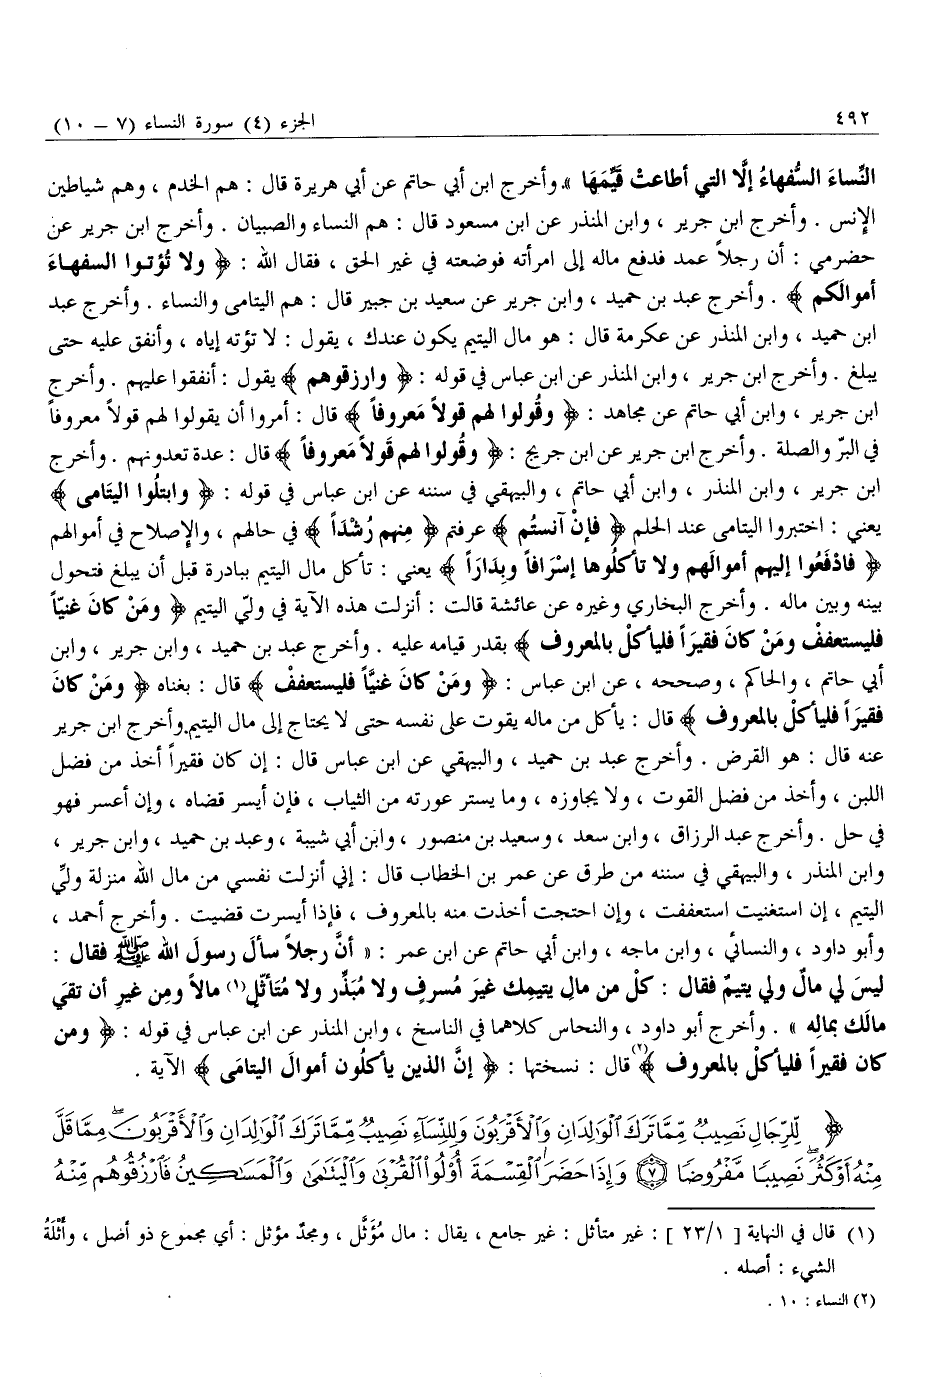 ٤٩٢ الجزء (٤) سورة النساء (٧ – ١٠)
النِّساءَ السُّفهاءُ إلَّا التي أطاعتْ قَيِّمَهَا ». وأخرج ابن أبي حاتم عن أبي هريرة قال : هم الخدم ، وهم شياطين
الإنس . وأخرج ابن جرير ، وابن المنذر عن ابن مسعود قال : هم النساء والصبيان . وأخرج ابن جرير عن
حضرمي : أن رجلاً عمد فدفع ماله إلى امرأته فوضعته في غير الحق ، فقال الله : ﴿ ولا تُؤتوا السفهاءَ
أموالَكم ﴾ . وأخرج عبد بن حميد ، وابن جرير عن سعيد بن جبير قال : هم اليتامى والنساء . وأخرج عبد
ابن حميد ، وابن المنذر عن عكرمة قال : هو مال اليتيم يكون عندك ، يقول : لا تؤته إياه ، وأنفق عليه حتى
يبلغ . وأخرج ابن جرير ، وابن المنذر عن ابن عباس في قوله : ﴿ وارزقوهم ﴾ يقول : أنفقوا عليهم . وأخرج
ابن جرير ، وابن أبي حاتم عن مجاهد : ﴿ وقُولوا لهم قولاً مَعروفاً ﴾ قال : أمروا أن يقولوا لهم قولاً معروفاً
في البرّ والصلة . وأخرج ابن جرير عن ابن جريج : ﴿ وقُولوا لهم قَولاً مَعروفاً ﴾ قال : عدة تعدونهم . وأخرج
ابن جرير ، وابن المنذر ، وابن أبي حاتم ، والبيهقي في سننه عن ابن عباس في قوله : ﴿ وابتلُوا اليتَامى ﴾
يعني : اختبروا اليتامى عند الحلم ﴿ فإنْ آنستُم ﴾ عرفتم ﴿ مِنهم رُشْدَاً ﴾ في حالهم ، والإصلاح في أموالهم
﴿ فادْفَعُوا إليهم أموالَهم ولا تأكلُوها إسْرَافاً وبِدَارَاً ﴾ يعني : تأكل مال اليتيم ببادرة قبل أن يبلغ فتحول
بينه وبين ماله . وأخرج البخاري وغيره عن عائشة قالت : أنزلت هذه الآية في وليّ اليتيم ﴿ ومَنْ كانَ غنيّاً
فليستعففْ ومَنْ كانَ فقيرَاً فليأكلْ بالمعروف ﴾ بقدر قيامه عليه . وأخرج عبد بن حميد ، وابن جرير ، وابن
أبي حاتم ، والحاكم ، وصححه ، عن ابن عباس : ﴿ ومَنْ كانَ غنيَّاً فليستعففْ ﴾ قال : بغناه ﴿ ومَنْ كانَ
فقيرَاً فليأكلْ بالمعروف ﴾ قال : يأكل من ماله يقوت على نفسه حتى لا يحتاج إلى مال اليتيم.وأخرج ابن جرير
عنه قال : هو القرض . وأخرج عبد بن حميد ، والبيهقي عن ابن عباس قال : إن كان فقيراً أخذ من فضل
اللبن ، وأخذ من فضل القوت ، ولا يجاوزه ، وما يستر عورته من الثياب ، فإن أيسر قضاه ، وإن أعسر فهو
في حل . وأخرج عبد الرزاق ، وابن سعد ، وسعيد بن منصور ، وابن أبي شيبة ، وعبد بن حميد ، وابن جرير ،
وابن المنذر ، والبيهقي في سننه من طرق عن عمر بن الخطاب قال : إني أنزلت نفسي من مال الله منزلة وليِّ
اليتيم ، إن استغنيت استعففت ، وإن احتجت أخذت منه بالمعروف ، فإذا أيسرت قضيت . وأخرج أحمد ،
وأبو داود ، والنسائي ، وابن ماجه ، وابن أبي حاتم عن ابن عمر : « أنَّ رجلاً سألَ رسولَ الله ﷺ فقال :
ليسَ لي مالٌ ولي يتيمٌ فقال : كلْ من مالِ يتيمِك غيرَ مُسرفٍ ولا مُبَذِّر ولا مُتَأثِّلٍ(١) مالاً ومِن غيرِ أن تقيَ
مالَك بمالِه » . وأخرج أبو داود ، والنحاس كلاهما في الناسخ ، وابن المنذر عن ابن عباس في قوله : ﴿ ومن
كان فقيراً فليأكلْ بالمعروف ﴾(٢) قال : نسختها : ﴿ إنَّ الذين يأكلُون أموالَ اليتامَى ﴾ الآية .
﴿ لِّلرِّجَالِ نَصِيبٌ مِّمَّا تَرَكَ ٱلْوَٰلِدَانِ وَٱلْأَقْرَبُونَ وَلِلنِّسَآءِ نَصِيبٌ مِّمَّا تَرَكَ ٱلْوَٰلِدَانِ وَٱلْأَقْرَبُونَ مِمَّا قَلَّ
مِنْهُ أَوْ كَثُرَ نَصِيبًا مَّفْرُوضًا ٧ وَإِذَا حَضَرَ ٱلْقِسْمَةَ أُو۟لُوا۟ ٱلْقُرْبَىٰ وَٱلْيَتَٰمَىٰ وَٱلْمَسَٰكِينُ فَٱرْزُقُوهُم مِّنْهُ
(١) قال في النهاية [ ٢٣/١ ] : غير متأثل : غير جامع ، يقال : مال مُؤَثَّل ، ومجدٌ مؤثل : أي مجموع ذو أصل ، وأَثْلَةُ
الشيء : أصله .
(٢) النساء : ١٠ .